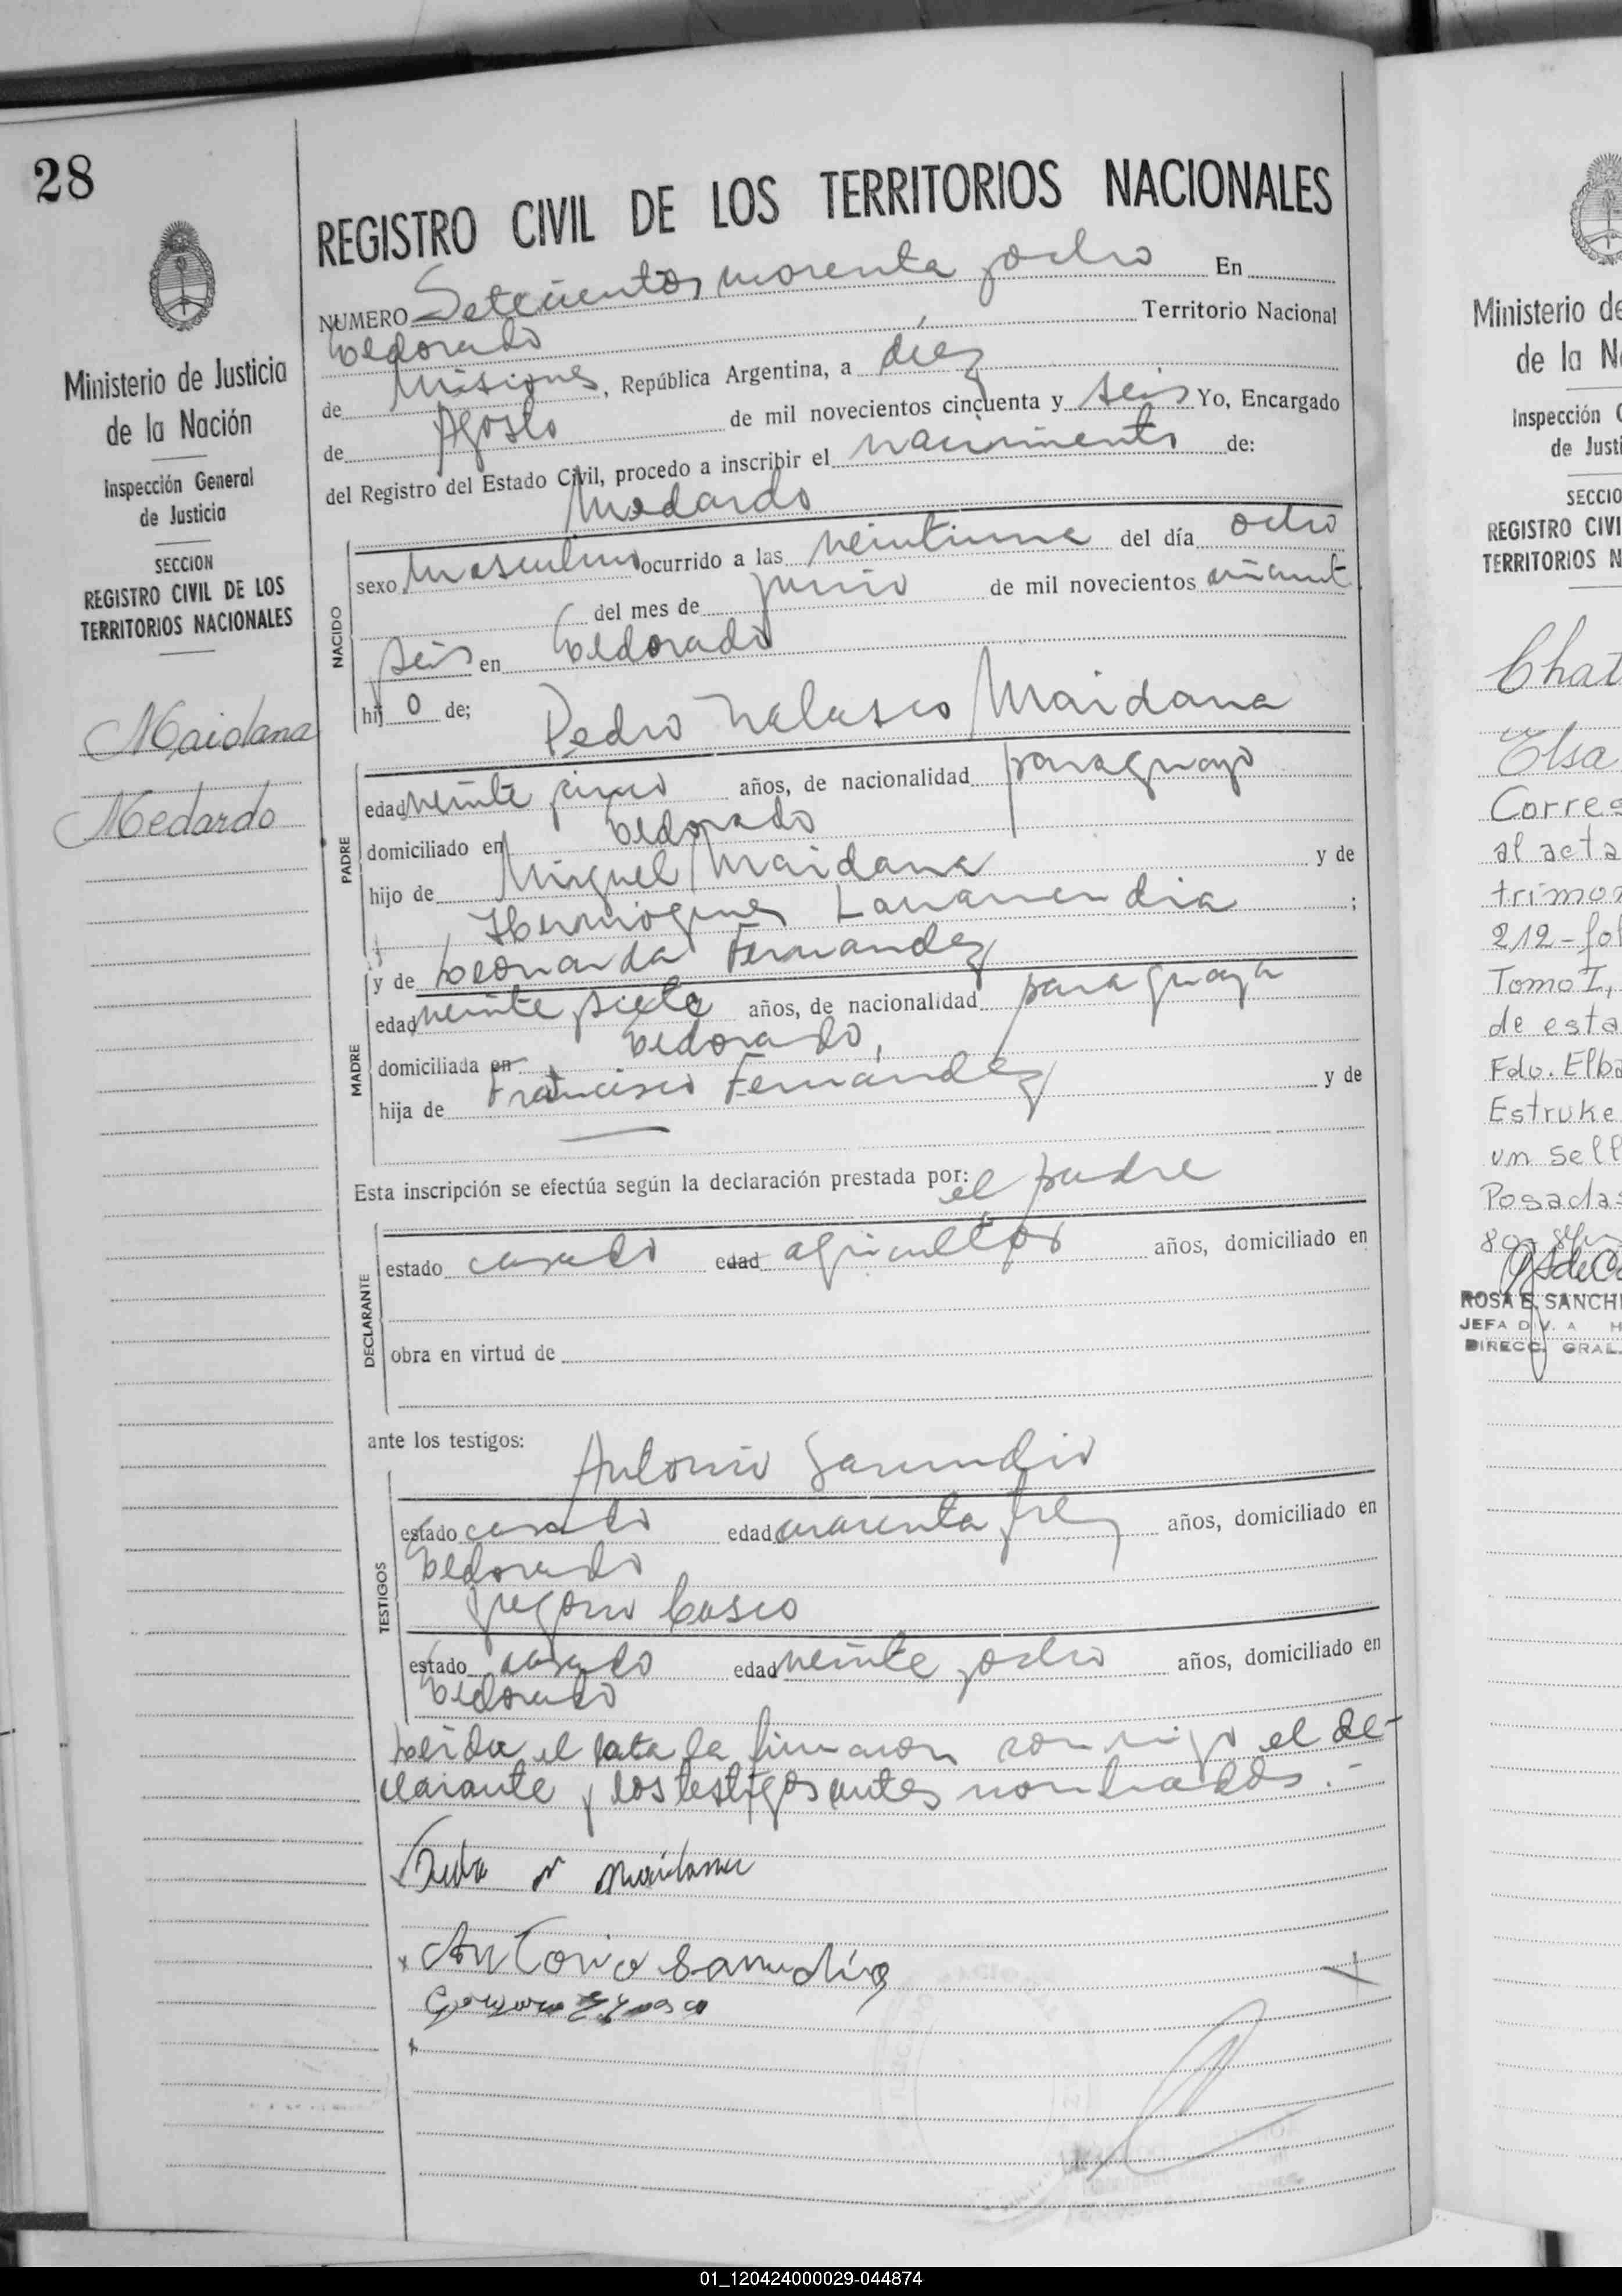 28
REGISTRO CIVIL DE LOS TERRITORIOS NACIONALES
NUMERO Setecientos noventa y ocho En
Eldorado Territorio Nacional
de Misiones, República Argentina, a diez
de Agosto de mil novecientos cincuenta y seis Yo, Encargado
del Registro del Estado Civil, procedo a inscribir el nacimiento de:
Medardo
sexo masculino ocurrido a las veintiuna del día ocho
del mes de junio de mil novecientos
seis en Eldorado
hij o de; Pedro Maidana
edad veinte y cinco años, de nacionalidad paraguayo
domiciliado en Eldorado
hijo de Miguel Maidana y de
Hermogenes ;
y de Leonarda Fernandez
edad veinte y siete años, de nacionalidad paraguaya
domiciliada en Eldorado,
hija de Francisco Fernández y de
Esta inscripción se efectúa según la declaración prestada por: el padre
estado casado edad agricultor años, domiciliado en
obra en virtud de
ante los testigos:
Antonio Samudio
estado casado edad cuarenta y tres años, domiciliado en
Eldorado
Gregorio
estado casado edad veinte y ocho años, domiciliado en
Eldorado
Leida el acta la firmaron conmigo el de-
clarante y los testigos antes nombrados.-
Maidana
Antonio Samudio
NACIDO
PADRE
MADRE
DECLARANTE
TESTIGOS
Ministerio de Justicia
de la Nación
Inspección General
de Justicia
SECCION
REGISTRO CIVIL DE LOS
TERRITORIOS NACIONALES
Maidana
Medardo
Ministerio de
de la N
Inspección
de Justi
SECCIO
REGISTRO CIVI
TERRITORIOS N
Chat
Elsa
Corres
al acta
trimon
212-fol
Tomo I,
de esta
Fdo. Elba
Estruke
un sell
Posadas
ROSA E. SANCH
JEFA DIV. A H
DIRECC. GRAL.
01_120424000029-044874